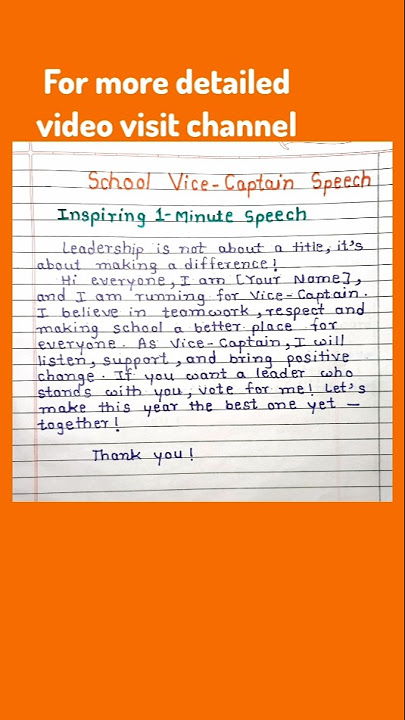 For more detailed
video visit channel
School Vice-Captain Speech
Inspiring 1-Minute Speech
Leadership is not about a title, it's
about making a difference!
Hi everyone, I am [Your Name],
and I am running for Vice-Captain.
I believe in teamwork, respect and
making school a better place for
everyone. As Vice-Captain, I will
listen, support, and bring positive
change. If you want a leader who
stands with you, vote for me! Let's
make this year the best one yet –
together!
Thank you!